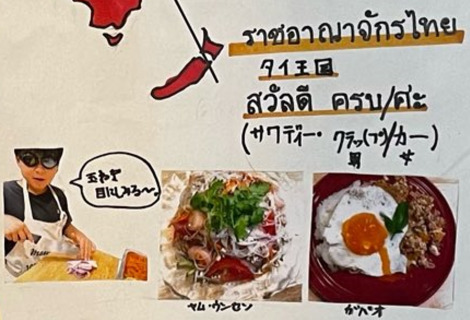 ราชอาณาจักรไทย
タイ王国
สวัสดี ครบ/ศะ
(サワディー・クラッ(プ)/カー)
男 女
玉ねぎ
目にしみる〜。
ヤム・ウンセン
ガパオ